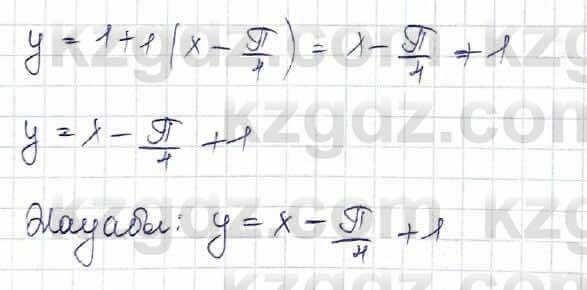 y = 1 + 1 (x − π/4) = x − π/4 + 1
y = x − π/4 + 1
Жауабы: y = x − π/4 + 1
kzgdz.com